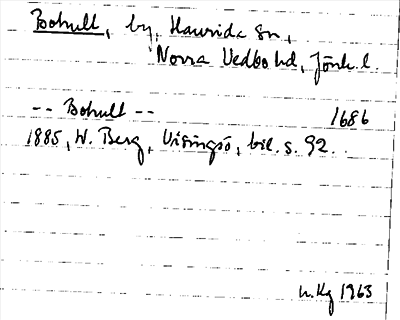 Bohult, by, Haurida sn,
Norra Vedbo hd, Jönk. l.
-- Bohult -- 1686
1885, W. Berg, Visingsö, bil. s. 92.
1963